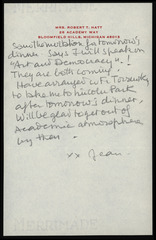 MRS. ROBERT T. HATT
28 ACADEMY WAY
BLOOMFIELD HILLS, MICHIGAN 48013
tomorrow's
dinner. Says I will speak on
"Art and Democracy"!
They are both coming.
Have arranged w. Ti Tozensky
to take me to Lincoln Park
after tomorrow's dinner.
Will be glad to get out of
academic atmosphere
by then.
xx Jean